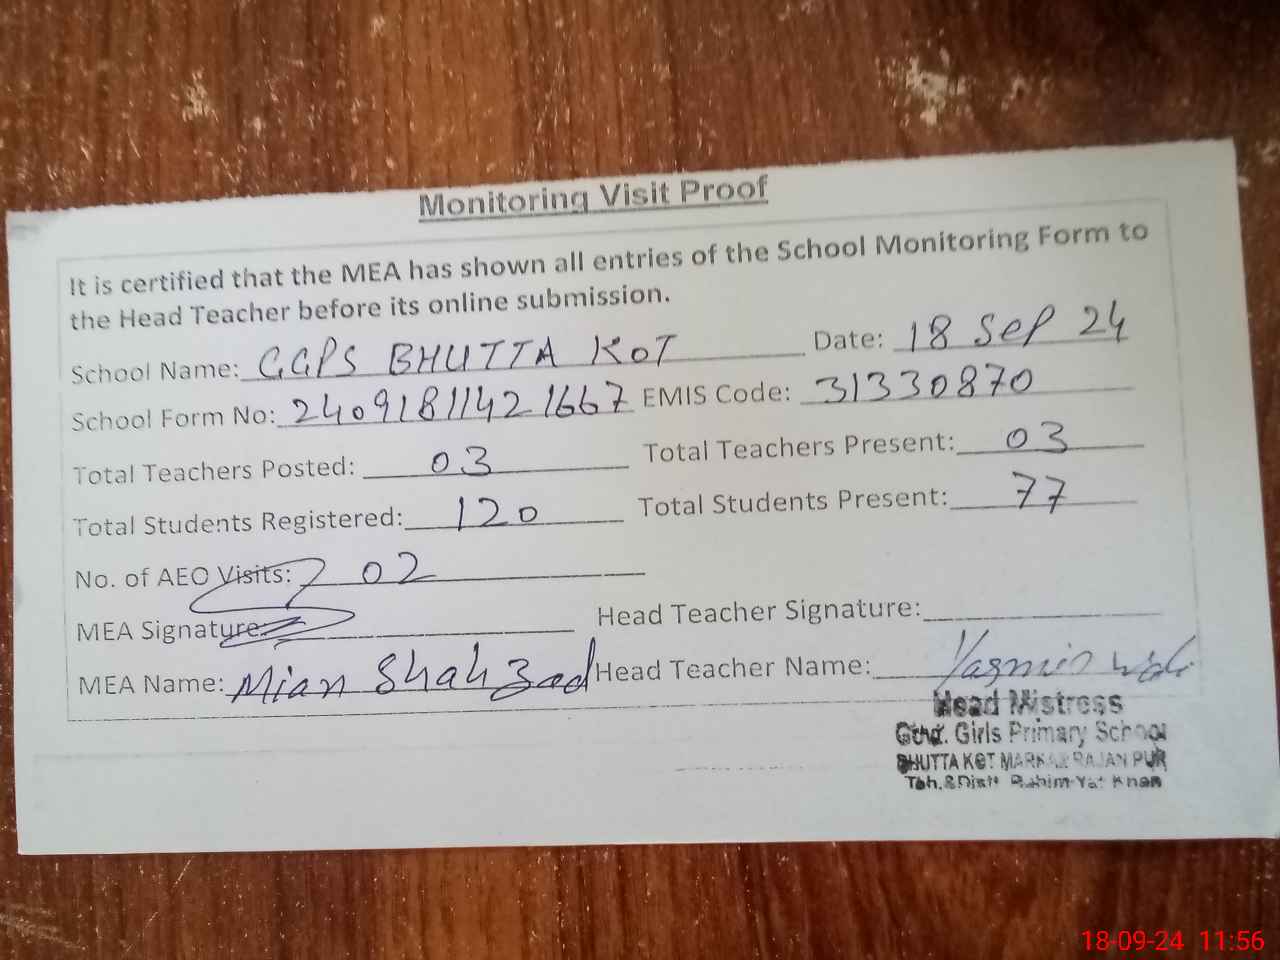 Monitoring Visit Proof
It is certified that the MEA has shown all entries of the School Monitoring Form to
the Head Teacher before its online submission.
School Name: GGPS BHUTTA KOT Date: 18 Sep 24
School Form No: 24091811421667 EMIS Code: 31330870
Total Teachers Posted: 03 Total Teachers Present: 03
Total Students Registered: 120 Total Students Present: 77
No. of AEO Visits: 02
MEA Signature: Head Teacher Signature:
MEA Name: Mian Shahzad Head Teacher Name: Yasmin
Head Mistress
Govt. Girls Primary School
BHUTTA KOT MARKAZ RAJAN PUR
Teh. & Distt Rahim Yar Khan
18-09-24 11:56